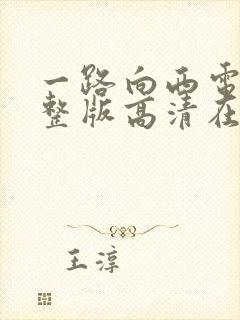 一路向西电
整版高清在
王淳